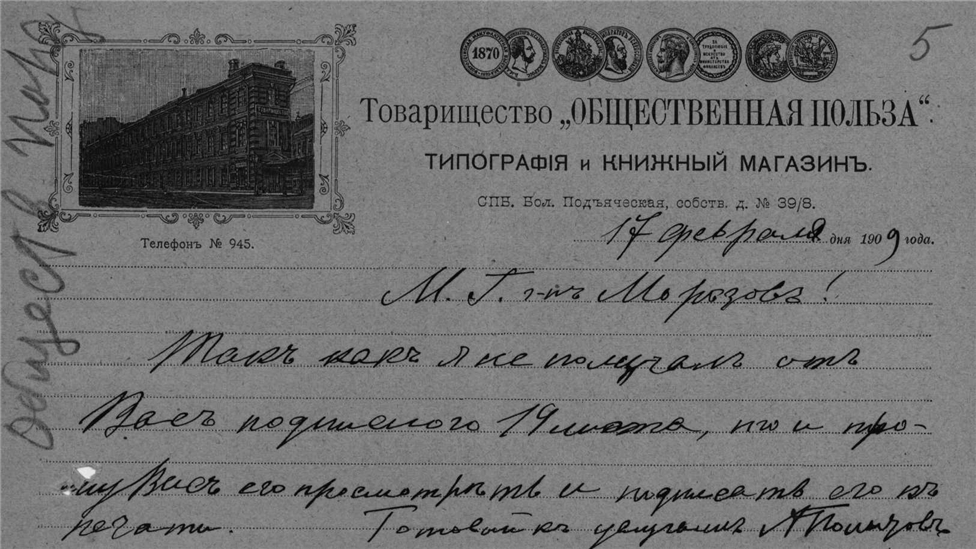 Обществ. польз
5
1870
Товарищество „ОБЩЕСТВЕННАЯ ПОЛЬЗА“.
ТИПОГРАФІЯ и КНИЖНЫЙ МАГАЗИНЪ.
СПБ. Бол. Подъяческая, собств. д. № 39/8.
Телефонъ № 945.
17 февраля дня 1909 года.
М. Г. г-нъ Морозовъ!
Такъ какъ я не получалъ отъ
Васъ подписного 19 листа, то и про-
шу Васъ его просмотрѣть и подписать его къ
печати. Готовый къ услугамъ